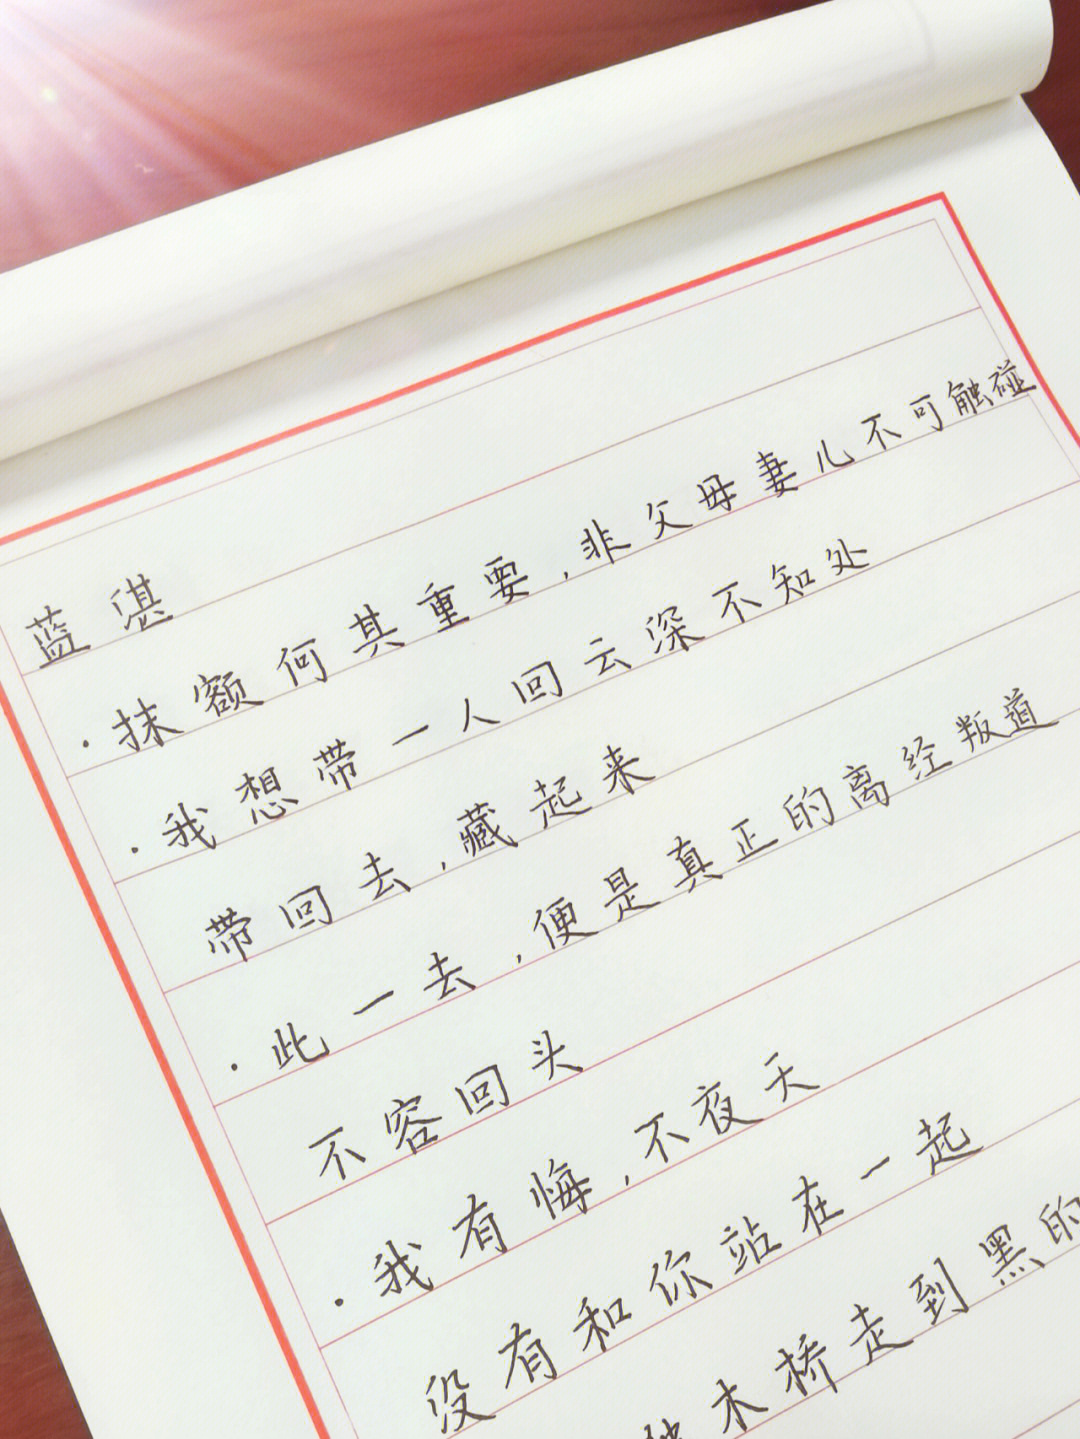 蓝湛
·抹额何其重要,非父母妻儿不可触碰
·我想带一人回云深不知处
带回去,藏起来
·此一去,便是真正的离经叛道
不容回头
·我有悔,不夜天
没有和你站在一起
木桥走到黑的